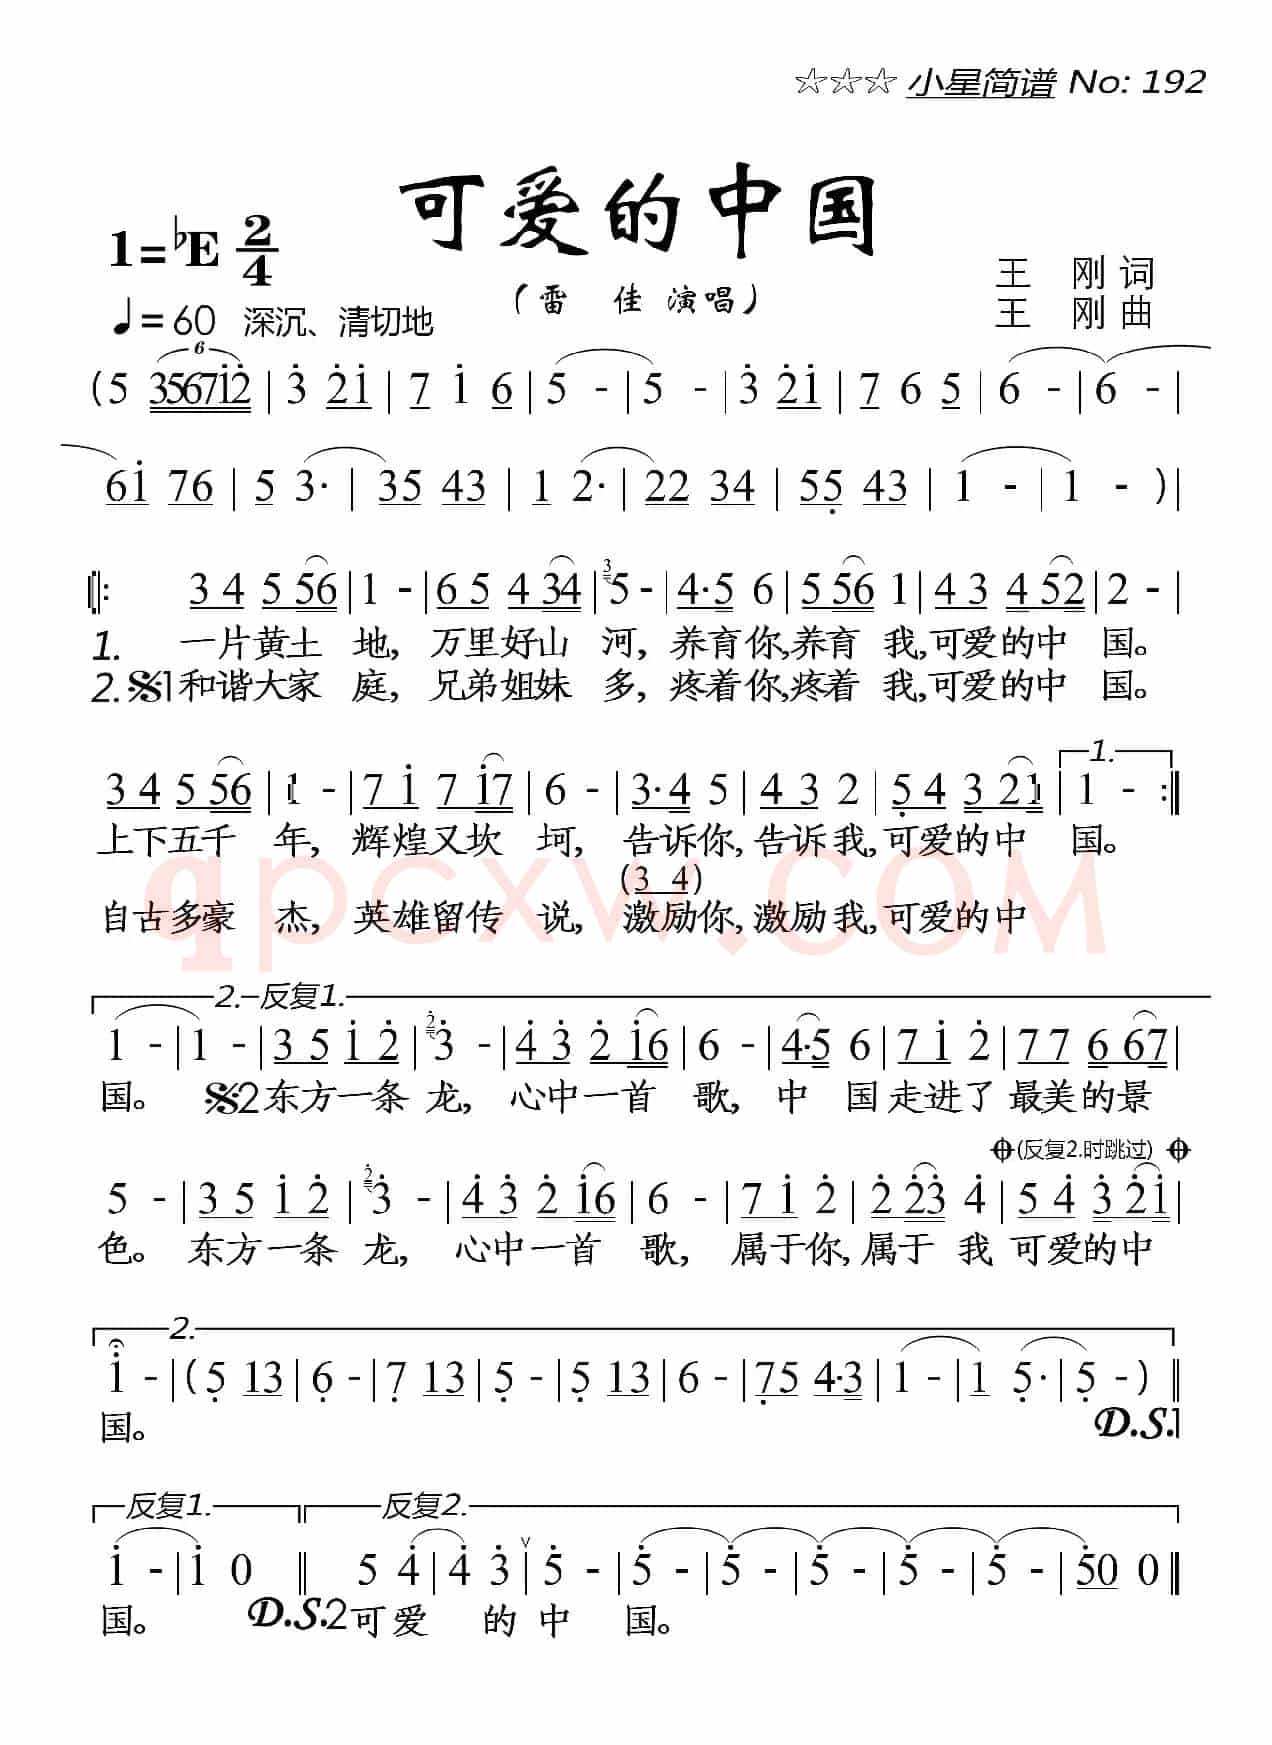 ☆☆☆ 小星简谱 No: 192
可爱的中国
1=♭E 2/4
（雷 佳 演唱）
王 刚 词
♩=60 深沉、清切地
王 刚 曲
6
(5 356712 | 3 21 | 7 1 6 | 5 - | 5 - | 3 21 | 7 6 5 | 6 - | 6 - |
61 76 | 5 3· | 35 43 | 1 2· | 22 34 | 55 43 | 1 - | 1 - )|
‖: 3 4 5 56 | 1 - | 6 5 4 34 | 3 5 - | 4·5 6 | 5 56 1 | 4 3 4 52 | 2 - |
1. 一片黄土 地, 万里好山 河, 养育你,养育 我,可爱的中 国。
2. 𝄋1 和谐大家 庭, 兄弟姐妹 多, 疼着你,疼着 我,可爱的中 国。
1.
3 4 5 56 | 1 - | 7 1 7 17 | 6 - | 3·4 5 | 4 3 2 | 5 4 3 21 | 1 - :‖
上下五千 年, 辉煌又坎 坷, 告诉你,告诉我,可爱的中 国。
(3 4)
自古多豪 杰, 英雄留传 说, 激励你,激励我,可爱的中
qpcxw.COM
2.-反复1.
1 - | 1 - | 3 5 1 2 | 2 3 - | 4 3 2 16 | 6 - | 4·5 6 | 7 1 2 | 7 7 6 67 |
国。 𝄋2 东方一条 龙, 心中一首 歌, 中 国走进了 最美的景
𝄌(反复2.时跳过) 𝄌
5 - | 3 5 1 2 | 2 3 - | 4 3 2 16 | 6 - | 7 1 2 | 2 23 4 | 5 4 3 21 |
色。 东方一条 龙, 心中一首 歌, 属于你,属于 我 可爱的中
2.
1 - | (5 13 | 6 - | 7 13 | 5 - | 5 13 | 6 - | 75 4·3 | 1 - | 1 5· | 5 - ) ‖
国。 D.S.1
反复1. 反复2.
1 - | 1 0 ‖ 5 4 | 4 3 ∨ | 5 - | 5 - | 5 - | 5 - | 5 - | 50 0 ‖
国。 D.S.2 可爱 的 中 国。